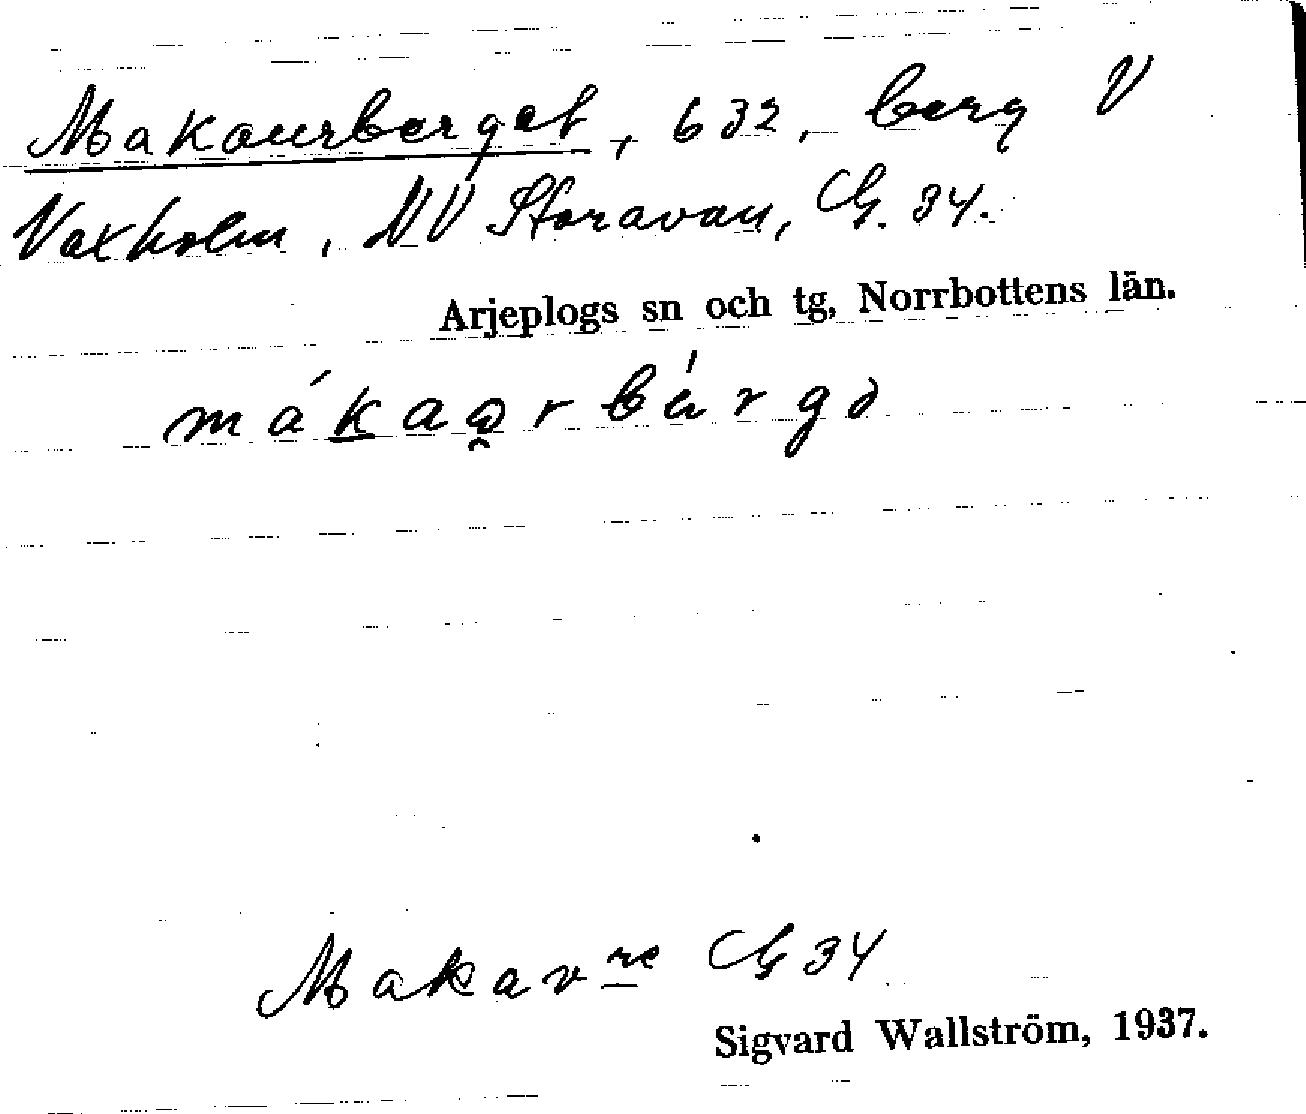 Makaurberget, 632, berg V
Vaxholm, NV Storavan, G. 34.
Arjeplogs sn och tg, Norrbottens län.
Makavre G 34
Sigvard Wallström, 1937.